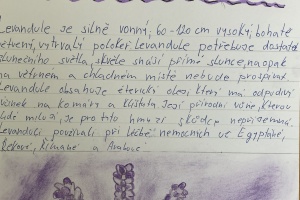 Levandule je silně vonný, 60-120 cm vysoký, bohatě
větvený, vytrvalý polokeř. Levandule potřebuje dostatek
slunečního světla, skvěle snáší přímé slunce, naopak
na větrném a chladném místě nebude prospívat
Levandule obsahuje éterický olej který má odpudivý
účinek na komáry a klíšťata. Její přírodní vůně, kterou
lidé milují, je pro tito hmyzí škůdce nepříjemná.
Levanduli používali při léčbě nemocních už Egypťané,
Řekové, Římané a Arabové.